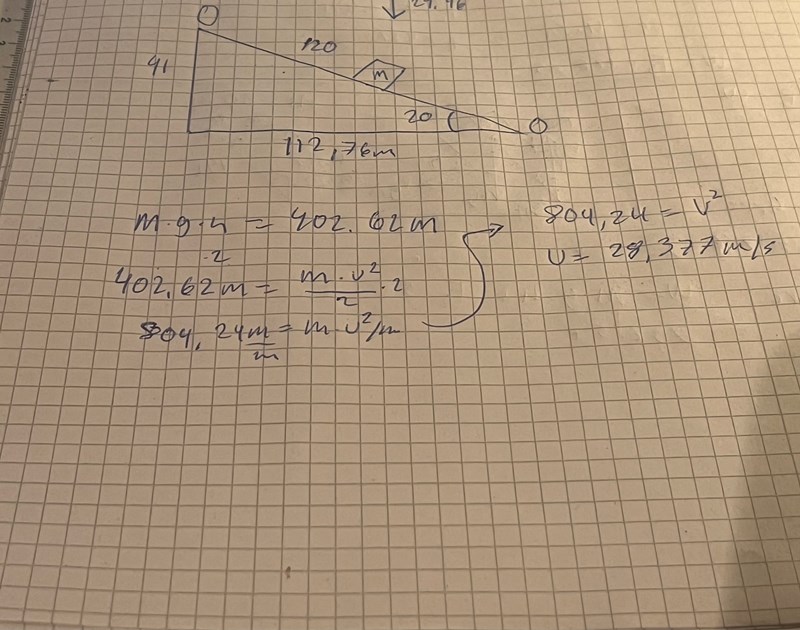 24.46
120
41
m
20
112,76m
m·g·h = 402.62m
·2
402.62m = m·v²/2 ·2
804,24m/m = m·v²/m
804,24 = v²
v = 28,377 m/s